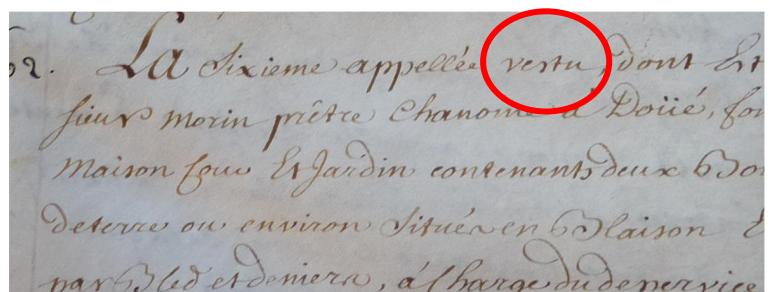 62. La Sixieme appellée vertu, dont Est
sieur morin prêtre Chanoine a Doüé, 
Maison Cour Et Jardin contenants deux
deterre ou environ Situés en Blaison
par Bled et deniers, á Charge du de